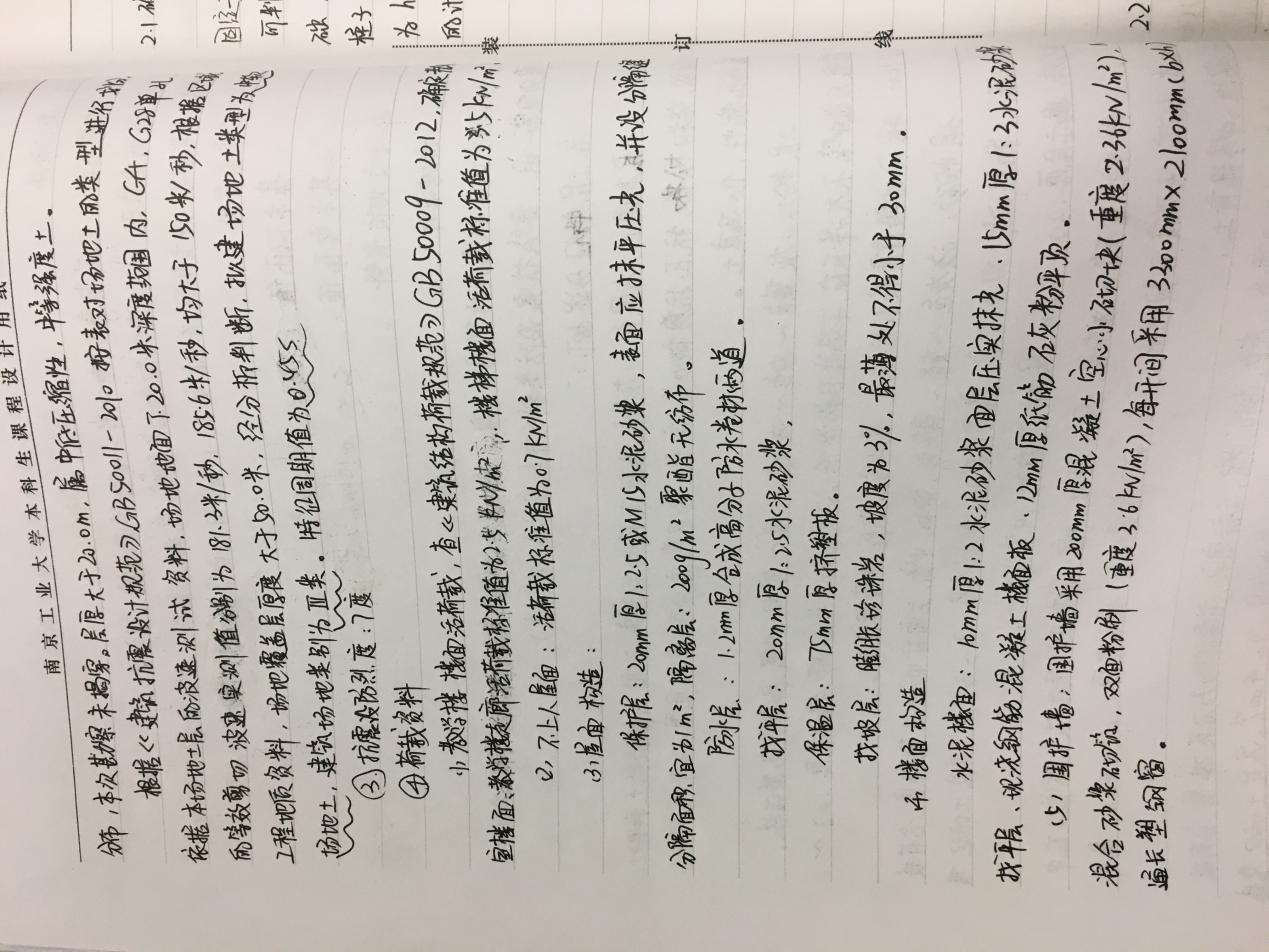 南京工业大学本科生课程设计用纸
分布,本次勘察未揭穿。层厚大于20.0m,属中低压缩性,中等强度土。
根据《建筑抗震设计规范》GB50011-2010 按表对场地土的类型进行划
依据本场地土层的波速测试资料,场地地面下20.0米深度范围内,G1、G28单孔
的等效剪切波速实测值分别为181.3米/秒,185.6米/秒,均大于150米/秒,根据区域
工程地质资料,场地覆盖层厚度大于50.0米,经分析判断,拟建场地土类型为中软
场地土,建筑场地类别为Ⅲ类。特征周期值为0.45s
③抗震设防烈度:7度
④荷载资料
1)教学楼楼面活荷载,查《建筑结构荷载规范》GB50009-2012,确定
室楼面活荷载标准值为2.5kN/m²,楼梯楼面活荷载标准值为3.5kN/m²
2)不上人屋面:活荷载标准值为0.7kN/m²
3)屋面构造:
保护层:20mm厚1:2.5或M15水泥砂浆,表面应抹平压光,并设分隔缝
分隔面积宜为1m²,隔离层:200g/m²聚酯无纺布。
防水层:1.2mm厚合成高分子防水卷材两道。
找平层:20mm厚1:2.5水泥砂浆,
保温层:75mm厚挤塑板。
找坡层:膨胀珍珠岩,坡度为3%,最薄处不得小于30mm。
4)楼面构造
水泥楼面:10mm厚1:2水泥砂浆面层压实抹光、15mm厚1:3水泥砂浆
找平层、现浇钢筋混凝土楼面板、12mm厚纸筋石灰粉平顶。
(5)围护墙:围护墙采用200mm厚混凝土空心小砌块(重度2.36kN/m²),
混合砂浆砌筑,双面粉刷(重度3.6kN/m²),每开间采用3300mm×2100mm(b×h)
通长塑钢窗。
装
订
线
2.1
固定
可判
砍
桩子
为h
的计
2.2